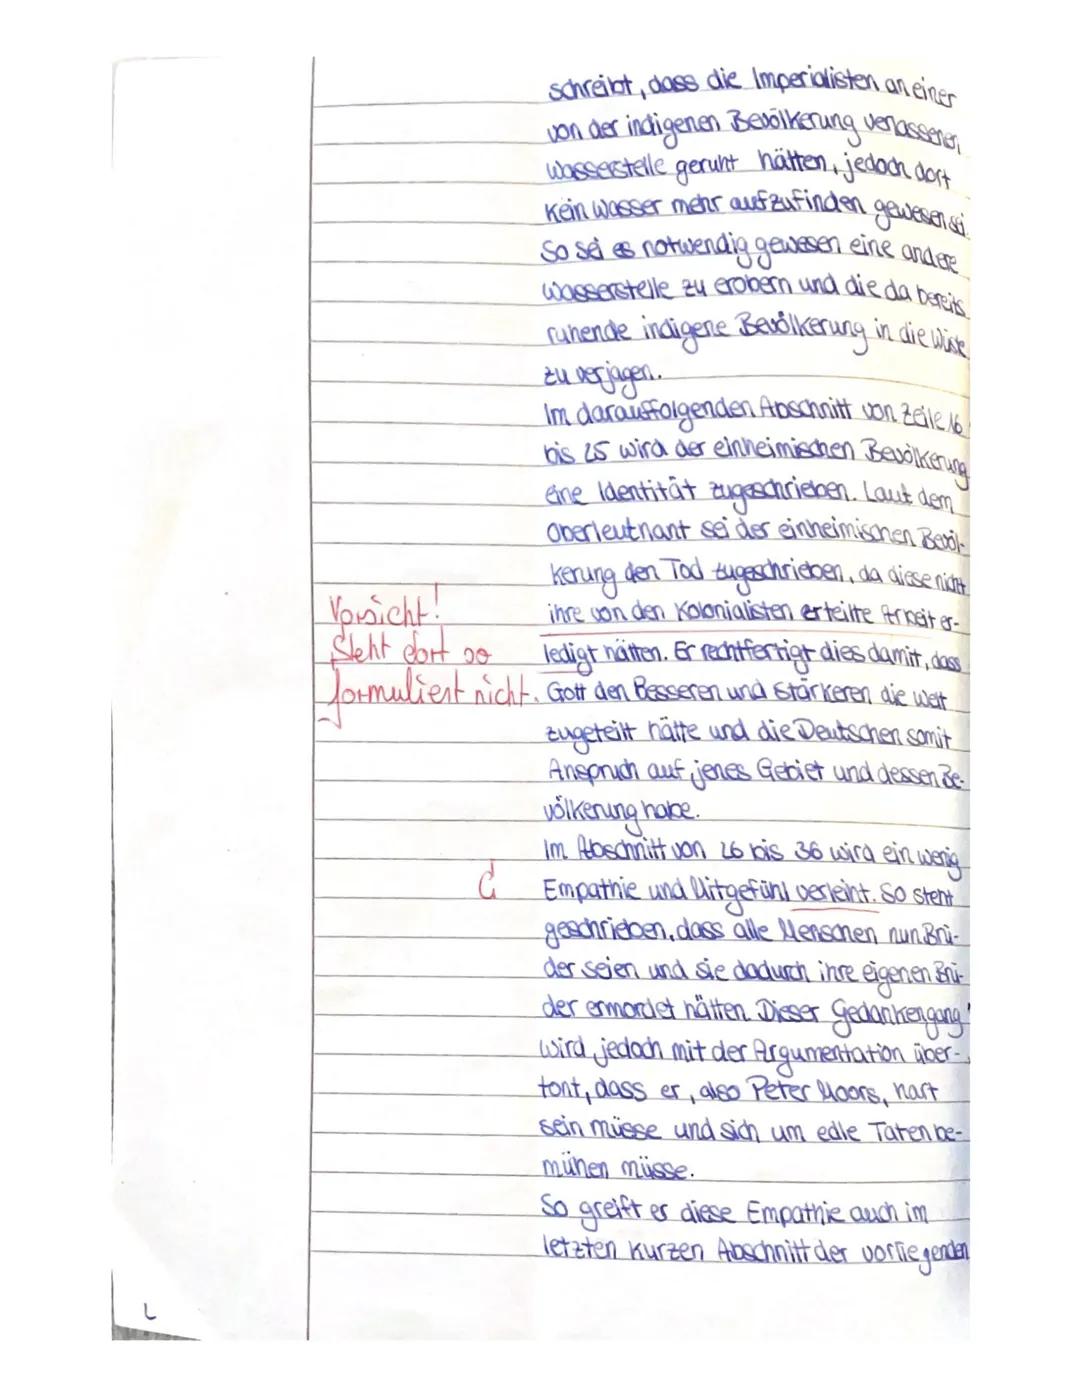 schreibt, dass die Imperialisten an einer
von der indigenen Bevölkerung verlassenen
Wasserstelle geruht hätten, jedoch dort
kein Wasser mehr aufzufinden gewesen sei.
So sei es notwendig gewesen eine andere
Wasserstelle zu erobern und die da bereits
ruhende indigene Bevölkerung in die Wüste
zu verjagen.
Im darauffolgenden Abschnitt von Zeile 16
bis 25 wird der einheimischen Bevölkerung
eine Identität zugeschrieben. Laut dem
Oberleutnant sei der einheimischen Bevöl-
kerung den Tod zugeschrieben, da diese nicht
Vorsicht!
ihre von den Kolonialisten erteilte Arbeit er-
Steht dort so
ledigt hätten. Er rechtfertigt dies damit, dass
formuliert nicht.
Gott den Besseren und Stärkeren die Welt
zugeteilt hätte und die Deutschen somit
Anspruch auf jenes Gebiet und dessen Be-
völkerung habe.
Im Abschnitt von 26 bis 36 wird ein wenig
Empathie und Mitgefühl verleiht. So steht
geschrieben, dass alle Menschen nun Brü-
der seien und sie dadurch ihre eigenen Brü-
der ermordet hätten. Dieser Gedankengang
wird jedoch mit der Argumentation über-
tont, dass er, also Peter Moors, hart
sein müsse und sich um edle Taten be-
mühen müsse.
So greift er diese Empathie auch im
letzten kurzen Abschnitt der vorliegenden